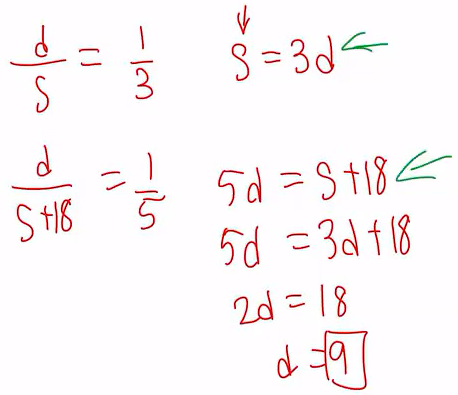 d/S = 1/3
S = 3d
d/S+18 = 1/5
5d = S+18
5d = 3d+18
2d = 18
d = 9